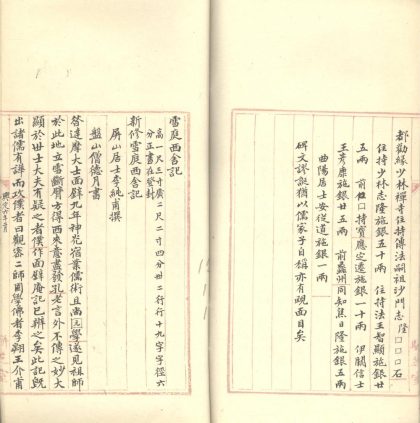 都勸緣少林禪寺住持傳法嗣祖沙門志隆□□□石
住持少林志隆施銀五十兩　住持法王智顯施銀廿
五兩　前住□持寶應定遷施銀一十兩　伊闕信士
王彥康施銀廿五兩　前州同知焦日隆施銀五兩
曲陽居士安從道施銀一兩
碑文謬誕猶以儒家子自稱亦有靦面目矣
雪庭西舍記
高一尺三寸廣二尺二寸四分廿二行行十九字字徑六
分正書在登封
新修雪庭西舍記
屏山居士李純甫撰
盤山僧德月書
昔達摩大士面壁九年神光宿業儒術且尚學遂見祖師
於此地立雪斷臂方得西來意盡發孔老言外不傳之妙大
顯於世士大夫有疑之者僕作面壁庵記已辨之矣此記既
出諸儒有譁而攻僕者曰觀二師學佛者李翱王介甫